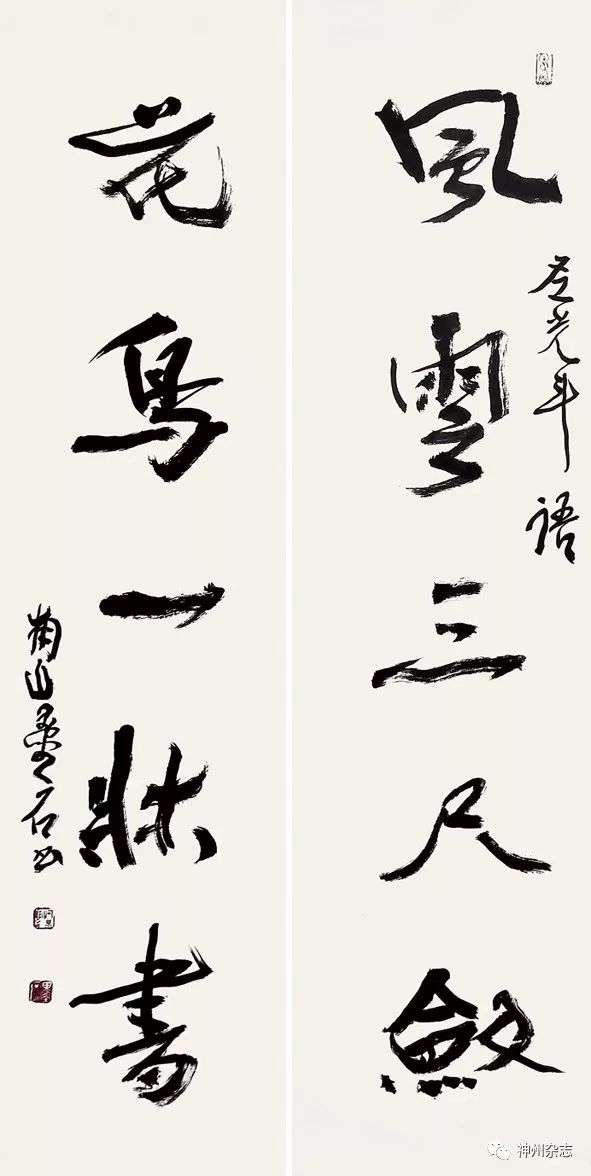 風雲三尺劍
左光斗語
花鳥一牀書
山石书
神州杂志